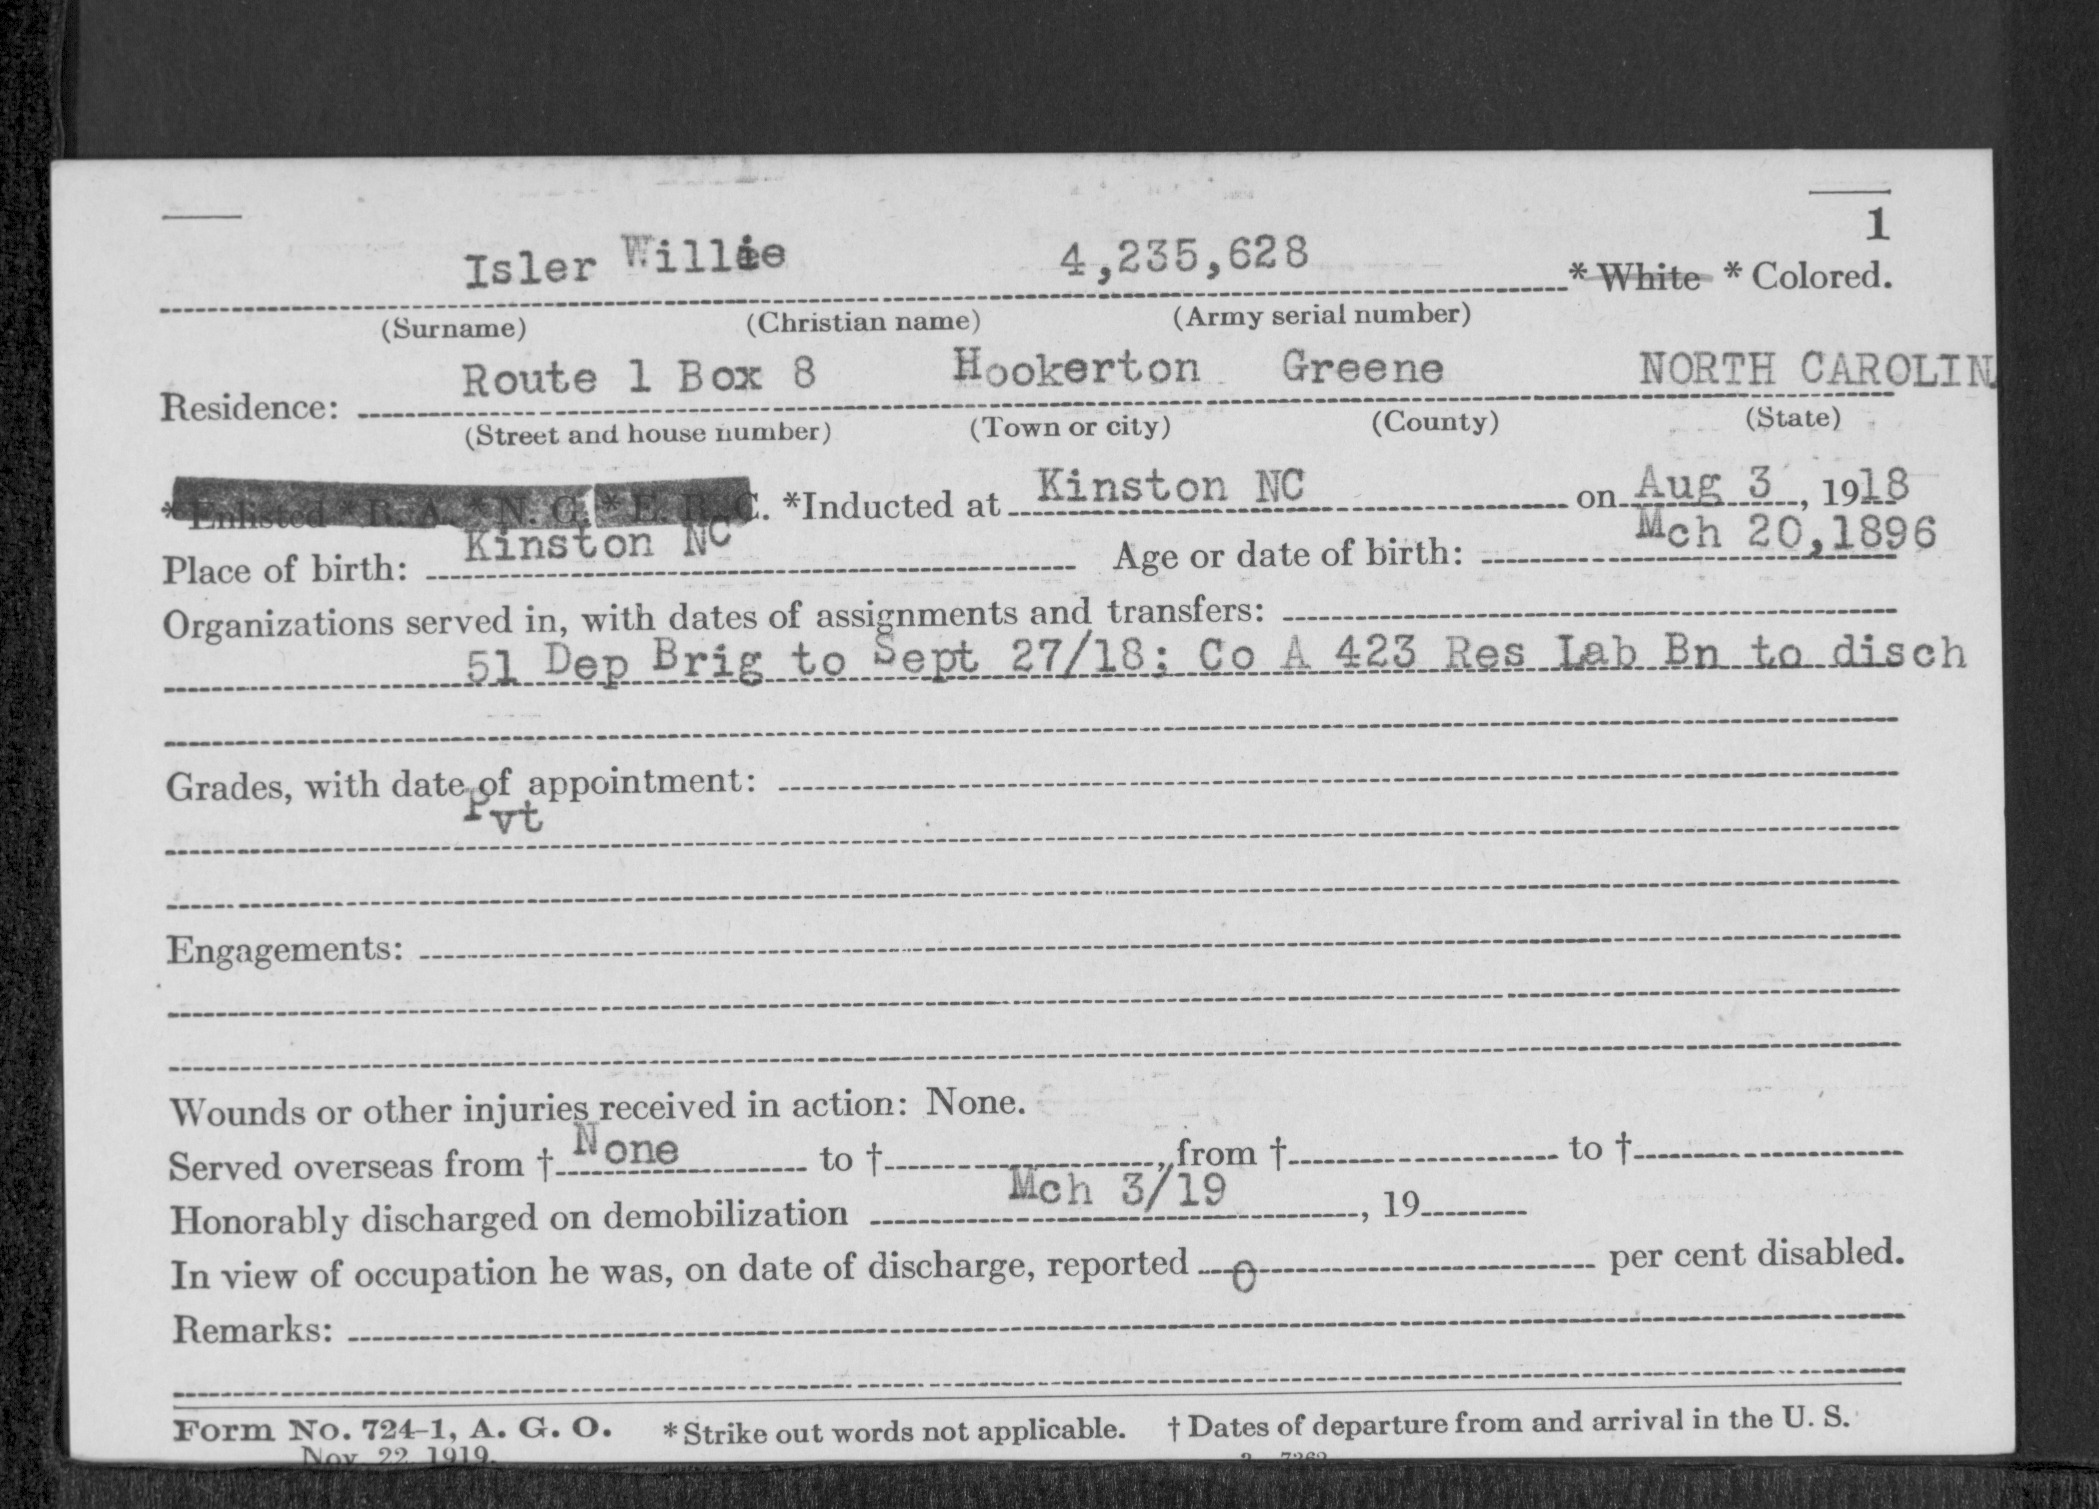 1
Isler Willie 4,235,628 * White * Colored.
(Surname) (Christian name) (Army serial number)
Route 1 Box 8 Hookerton Greene NORTH CAROLIN
Residence:
(Street and house number) (Town or city) (County) (State)
* Enlisted * R. A. * N. G. * E. R. C. *Inducted at Kinston NC on Aug 3, 1918
Place of birth: Kinston NC Age or date of birth: Mch 20,1896
Organizations served in, with dates of assignments and transfers:
51 Dep Brig to Sept 27/18; Co A 423 Res Lab Bn to disch
Grades, with date of appointment:
Pvt
Engagements:
Wounds or other injuries received in action: None.
Served overseas from † None to †, from † to †
Honorably discharged on demobilization Mch 3/19, 19
In view of occupation he was, on date of discharge, reported 0 per cent disabled.
Remarks:
Form No. 724-1, A. G. O. *Strike out words not applicable. † Dates of departure from and arrival in the U. S.
Nov. 22, 1919.